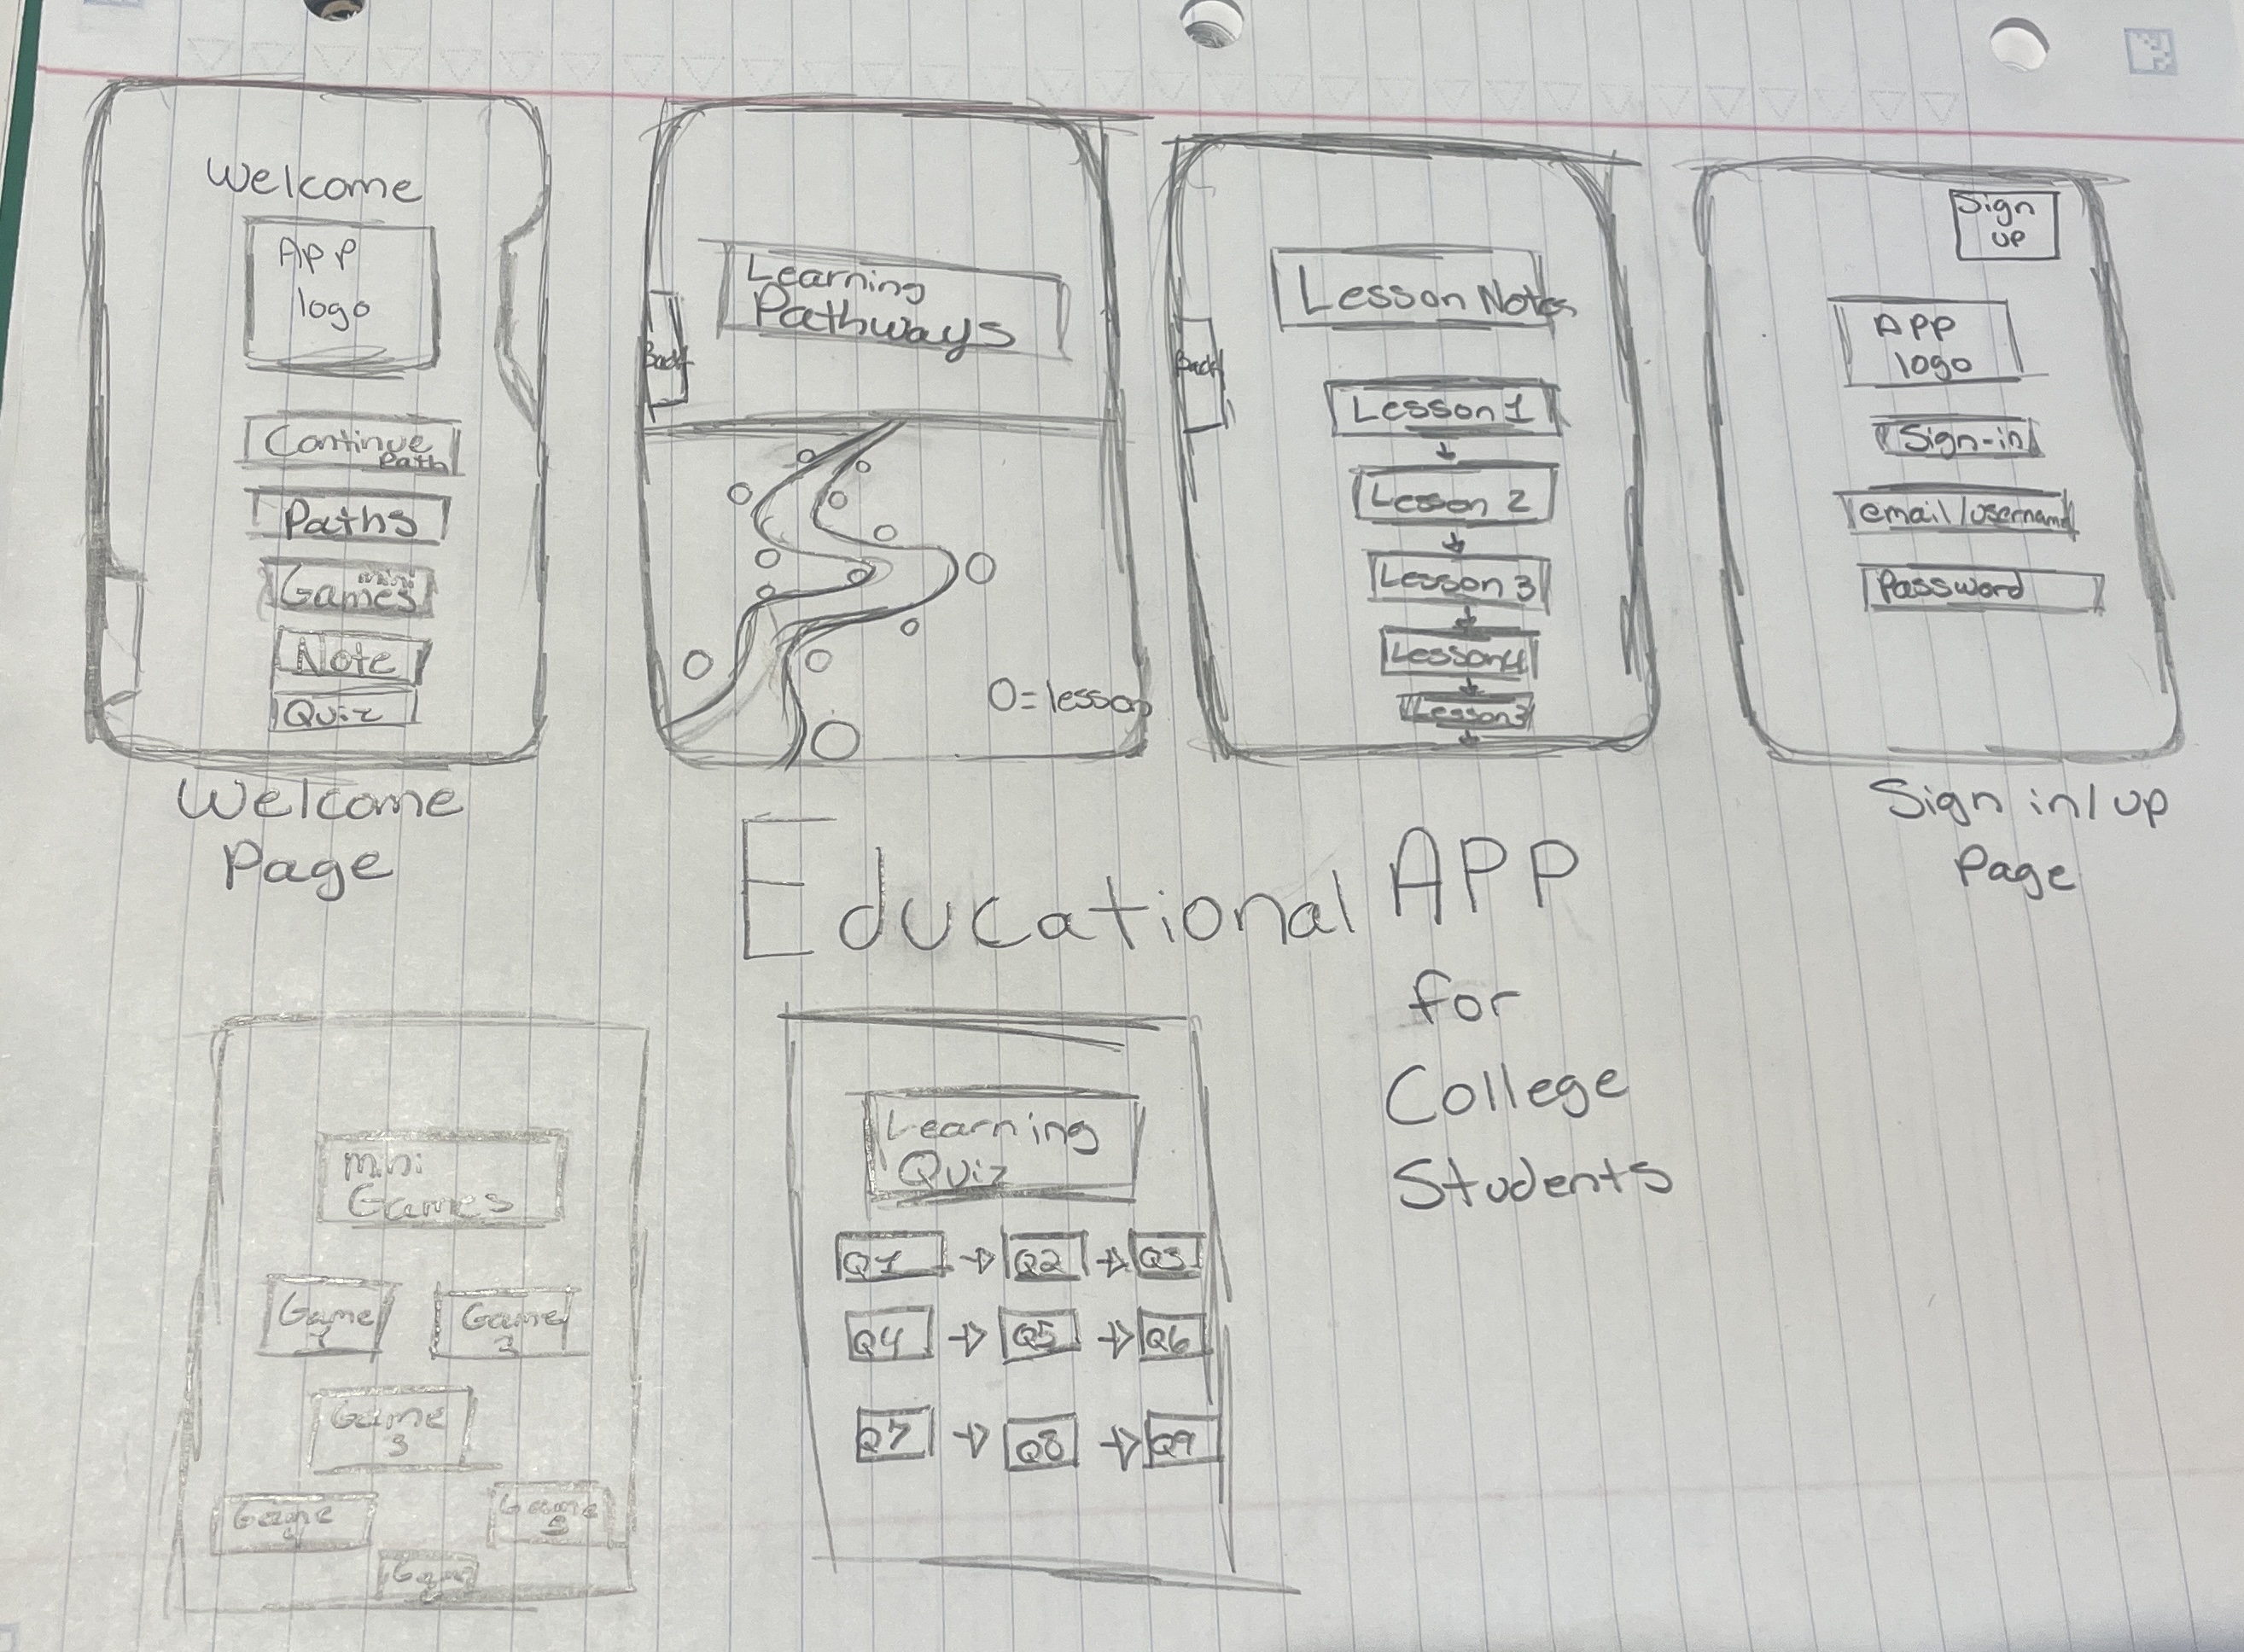 Welcome
App
logo
Continue
Path
Paths
mini
Games
Note
Quiz
Welcome
Page
Learning
Pathways
Back
O = lesson
Lesson Notes
Back
Lesson 1
Lesson 2
Lesson 3
Lesson 4
Lesson
Sign
up
APP
logo
Sign-in
email/username
Password
Sign in/up
Page
Educational APP
for
College
Students
mini
Games
Game
1
Game
2
Game
3
Game
4
Game
5
Game
Learning
Quiz
Q1 Q2 Q3
Q4 Q5 Q6
Q7 Q8 Q9